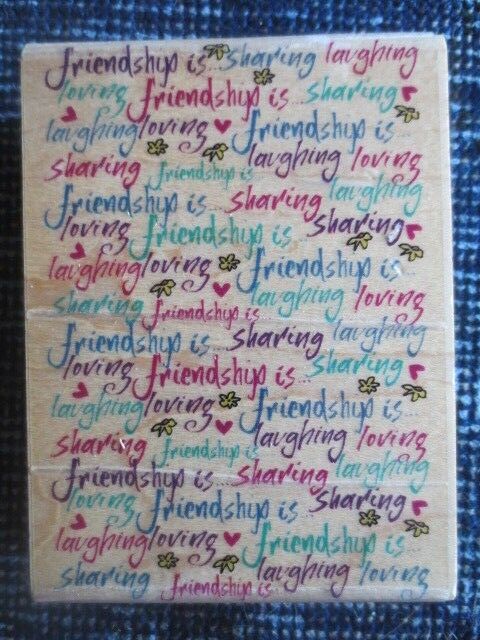 friendship is... sharing laughing
loving friendship is... sharing
laughing loving friendship is...
sharing friendship is... laughing loving
friendship is... sharing laughing
loving friendship is... sharing
laughing loving friendship is...
sharing friendship is... laughing loving
friendship is... sharing laughing
loving friendship is... sharing
laughing loving friendship is...
sharing friendship is... laughing loving
friendship is... sharing laughing
loving friendship is... sharing
laughing loving friendship is...
sharing friendship is... laughing loving